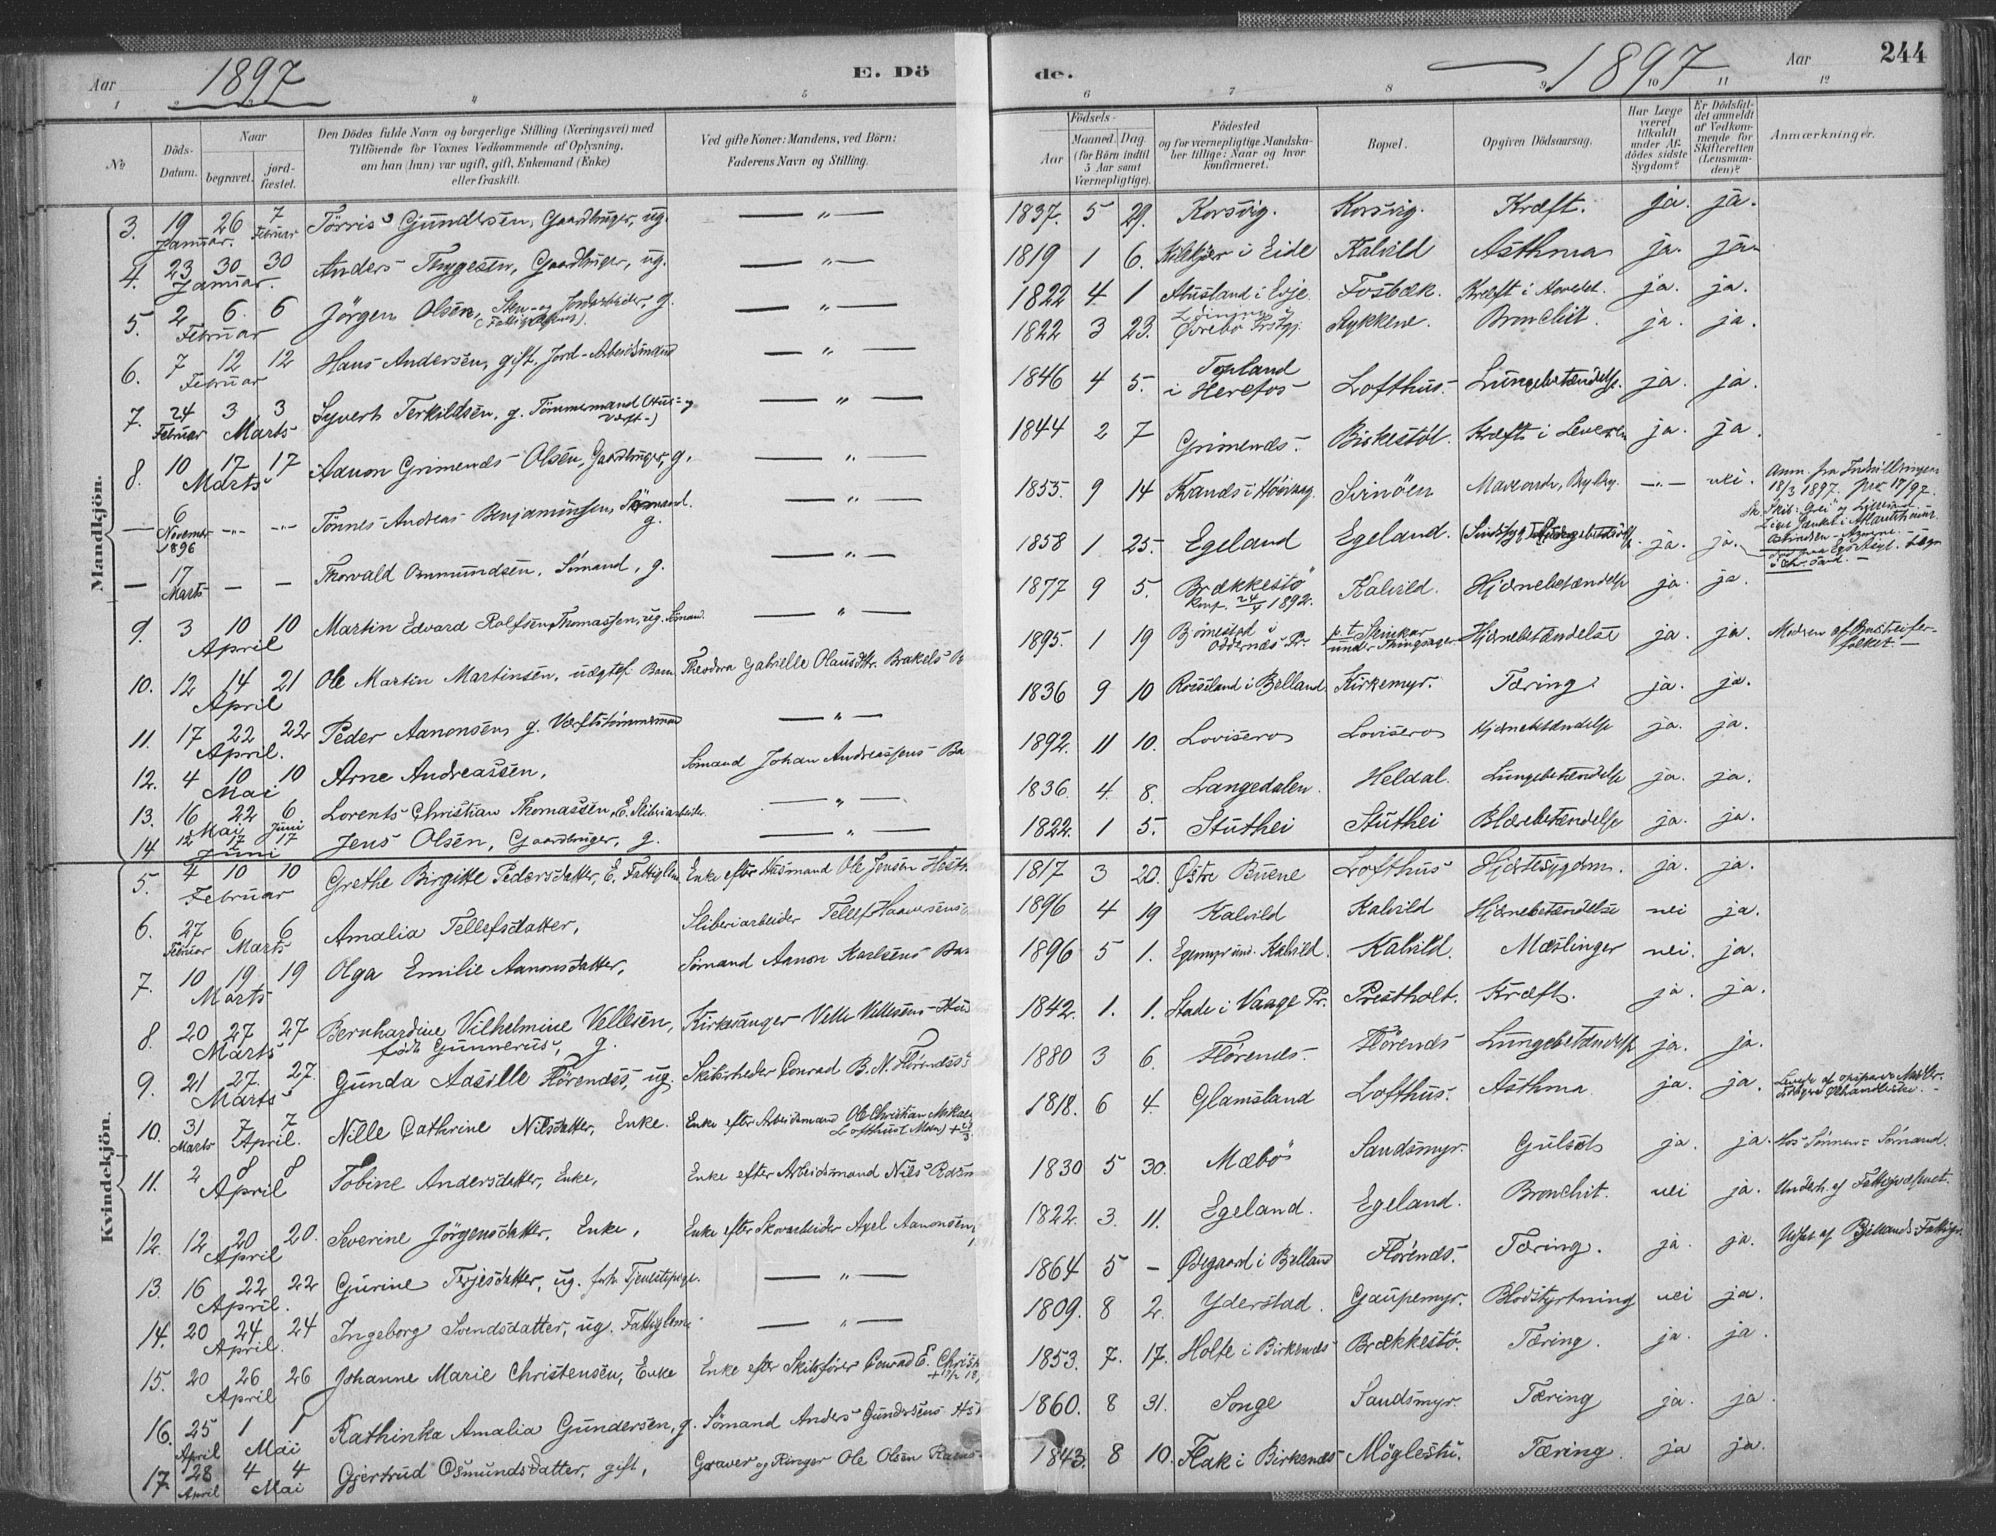 Aar 1897
E. Dö
de.
1897
Aar
244
1
4
5
6
7
8
9
10
11
12
No
Döds-Datum.
Naar
begravet.
jord-fæstet.
Den Dödes fulde Navn og borgerlige Stilling (Næringsvei) med
Tilföiende for Voxnes Vedkommende af Oplysning,
om han (hun) var ugift, gift, Enkemand (Enke)
eller fraskilt.
Ved gifte Koner: Mandens, ved Börn:
Faderens Navn og Stilling.
Födsels-
Aar
Maaned. Dag.
(for Börn indtil
5 Aar samt
Værnepligtige).
Födested
og for værnepligtige Mandska-
ber tillige: Naar og hvor
konfirmeret.
Bopæl.
Opgiven Dödsaarsag.
Har Læge
været
tilkaldt
under Af-
dödes sidste
Sygdom?
Er Dödsfal-
det anmeldt
af Vedkom-
mende for
Skifteretten
(Lensman-
den)?
Anmærkninger.
Mandkjön.
3. 19 Januar. 26 7 Februar Törris Gundersen, Gaardbruger, ug. — " —
4. 23 30 30 Januar. Anders Thygesen, Gaardbruger, ug. — " —
5. 2 6 6 Februar Jörgen Olsen, Jordarbeider, g. — " —
6. 7 12 12 Februar Hans Andersen, gift, Jord-Arbeidsmand — " —
7. 24 Februar 3 3 Marts Syvert Terkildsen, g. Tömmermand — " —
8. 10 17 17 Marts Aanon Grimenæs Olsen, Gaardbruger, g. — " —
— 6 November 1896 -"- -"- Tönnes Andreas Benjaminsen, Sömand. g. — " —
— 17 Marts — — Thorvald Osmundsen, Sömand, g. — " —
9. 3 10 10 April Martin Edvard Rolfsen Thomassen, ug. Sömand. — " —
10. 12 14 21 April Ole Martin Martinsen, Theodora Gabrielle Olausdtr. Brakels
11. 17 22 22 April. Peder Aanonsen g. Værftstömmermand — " —
12. 4 10 10 Mai Arne Andreassen, Sömand Johan Andreassens Ba
13. 16 Mai 22 6 Juni Lorents Christian Thomassen, E. Sliberiarbeider. — " —
14 12 17 17 Juni Jens Olsen, Gaardbruger, g. — " —
Kvindekjön.
5. 4 10 10 Februar Grethe Birgitte Pedersdatter, E. Fattiglem Enke efter Husmand Ole Jensen
6. 27 Februar 6 6 Marts Amalia Tellefsdatter, Sliberiarbeider Tellef Haavesens
7. 10 19 19 Marts Olga Emilie Aanonsdatter, Sömand Aanon Karlsens Bar
8. 20 27 27 Marts Bernhardine Vilhelmine Vellesen, Kirkesanger Velle Vellesens Hus
födt Gunnerus, g.
9. 21 27 27 Marts Gunda Aasille Flörenæs, ug. Skibsreder Conrad B. N. Florenæs's
10. 31 Marts 7 7 April. Nille Cathrine Nilsdatter, Enke. Enke efter Arbeidsmand Ole Christian
11. 2 8 8 April Tobine Andersdatter, Enke, Enke efter Arbeidsmand Nils
12. 12 20 20. April Severine Jörgensdatter, Enke, Enke efter Skovarbeider Axel Aanonsen,
13. 16 22 22 April. Gurine Terjesdatter, ug. forh. Tjenestepige. — " —
14. 20 24 24 April. Ingeborg Svendsdatter, ug. Fattiglem — " —
15. 20 26 26 April Johanne Marie Christensen, Enke Enke efter Skibsförer Conrad E. Christ
16. 25 April 1 1 Mai Kathinka Amalia Gundersen, g. Sömand Anders Gundersens
17. 28 April 4 4 Mai Gjertrud Osmundsdatter, gift, Graver og Ringer Ole Olsen
1837. 5 29. Korsvig. Korsvig. Kræft. ja. ja.
1819 1 6. i Eide Kalvild Asthma ja. ja
1822 4. 1 Abusland i Evje Fosbæk. Kræft i Hoved. ja. ja.
1822 3 23. Övrebö Prstgj. Stykkene. Bronchit. ja. ja.
1846 4 5. Topland i Herefos Lofthus Lungebetændelse. ja. ja.
1844 2 7 Grimenæs Birkestöl. Kræft i Leveren ja. ja.
1855. 9 14 Höivaag. Svinöen —"— nei. Anm. fra
18/3 1897.
1858 1 25. Egeland Egeland. ja. ja.
1877 9 5. Brækkestö Konf. 24/4 1892. Kalvild. Hjernebetændelse ja ja.
1895. 1 19 i Oddernæs Pr. Hjernebetændelse ja. ja.
1836 9 10 i Bjelland Kirkemyr. Tæring. ja. ja.
1892. 11 10. Lovisero Lovisero Hjernebetændelse ja. ja.
1836 4. 8. Langedalen Heldal. Lungebetændelse ja. ja.
1822. 1 5. Stuthei Stuthei Blærebetændelse ja. ja.
1817 3 20. Östre Buene Lofthus Hjertesygdom. ja. ja.
1896 4 19 Kalvild Kalvild Hjernebetændelse nei ja.
1896 5 1. Kalvild. Kalvild. Mæslinger nei. ja.
1842. 1. 1. Stade i Vaage Pr. Prestholt. Kræft. ja. ja.
1880 3 6. Flörenæs. Flörenæs Lungebetændelse ja. ja.
1818. 6 4. Glamsland Lofthus. Asthma ja. ja.
1830 5 30. Mæbö Sandsmyr. Gulsot ja. ja. Hos Sönnen Sömand
1822. 3. 11. Egeland. Egeland. Bronchit. nei ja. Underh. af Fattigvæsenet.
1864 5 — Ödegaard i Bjelland Flörenæs. Tæring. ja. ja. af Bjellands Fattigv.
1809. 8 2. Yderstad. Gaupemyr. Blodstyrtning nei ja.
1853. 7. 17. Holte i Birkenæs Brækkestö. Tæring. ja. ja.
1860. 8 31. Songe Sandsmyr. Tæring ja. ja.
1843. 8 10. Flak i Birkenæs Möglestu. Tæring. ja ja.